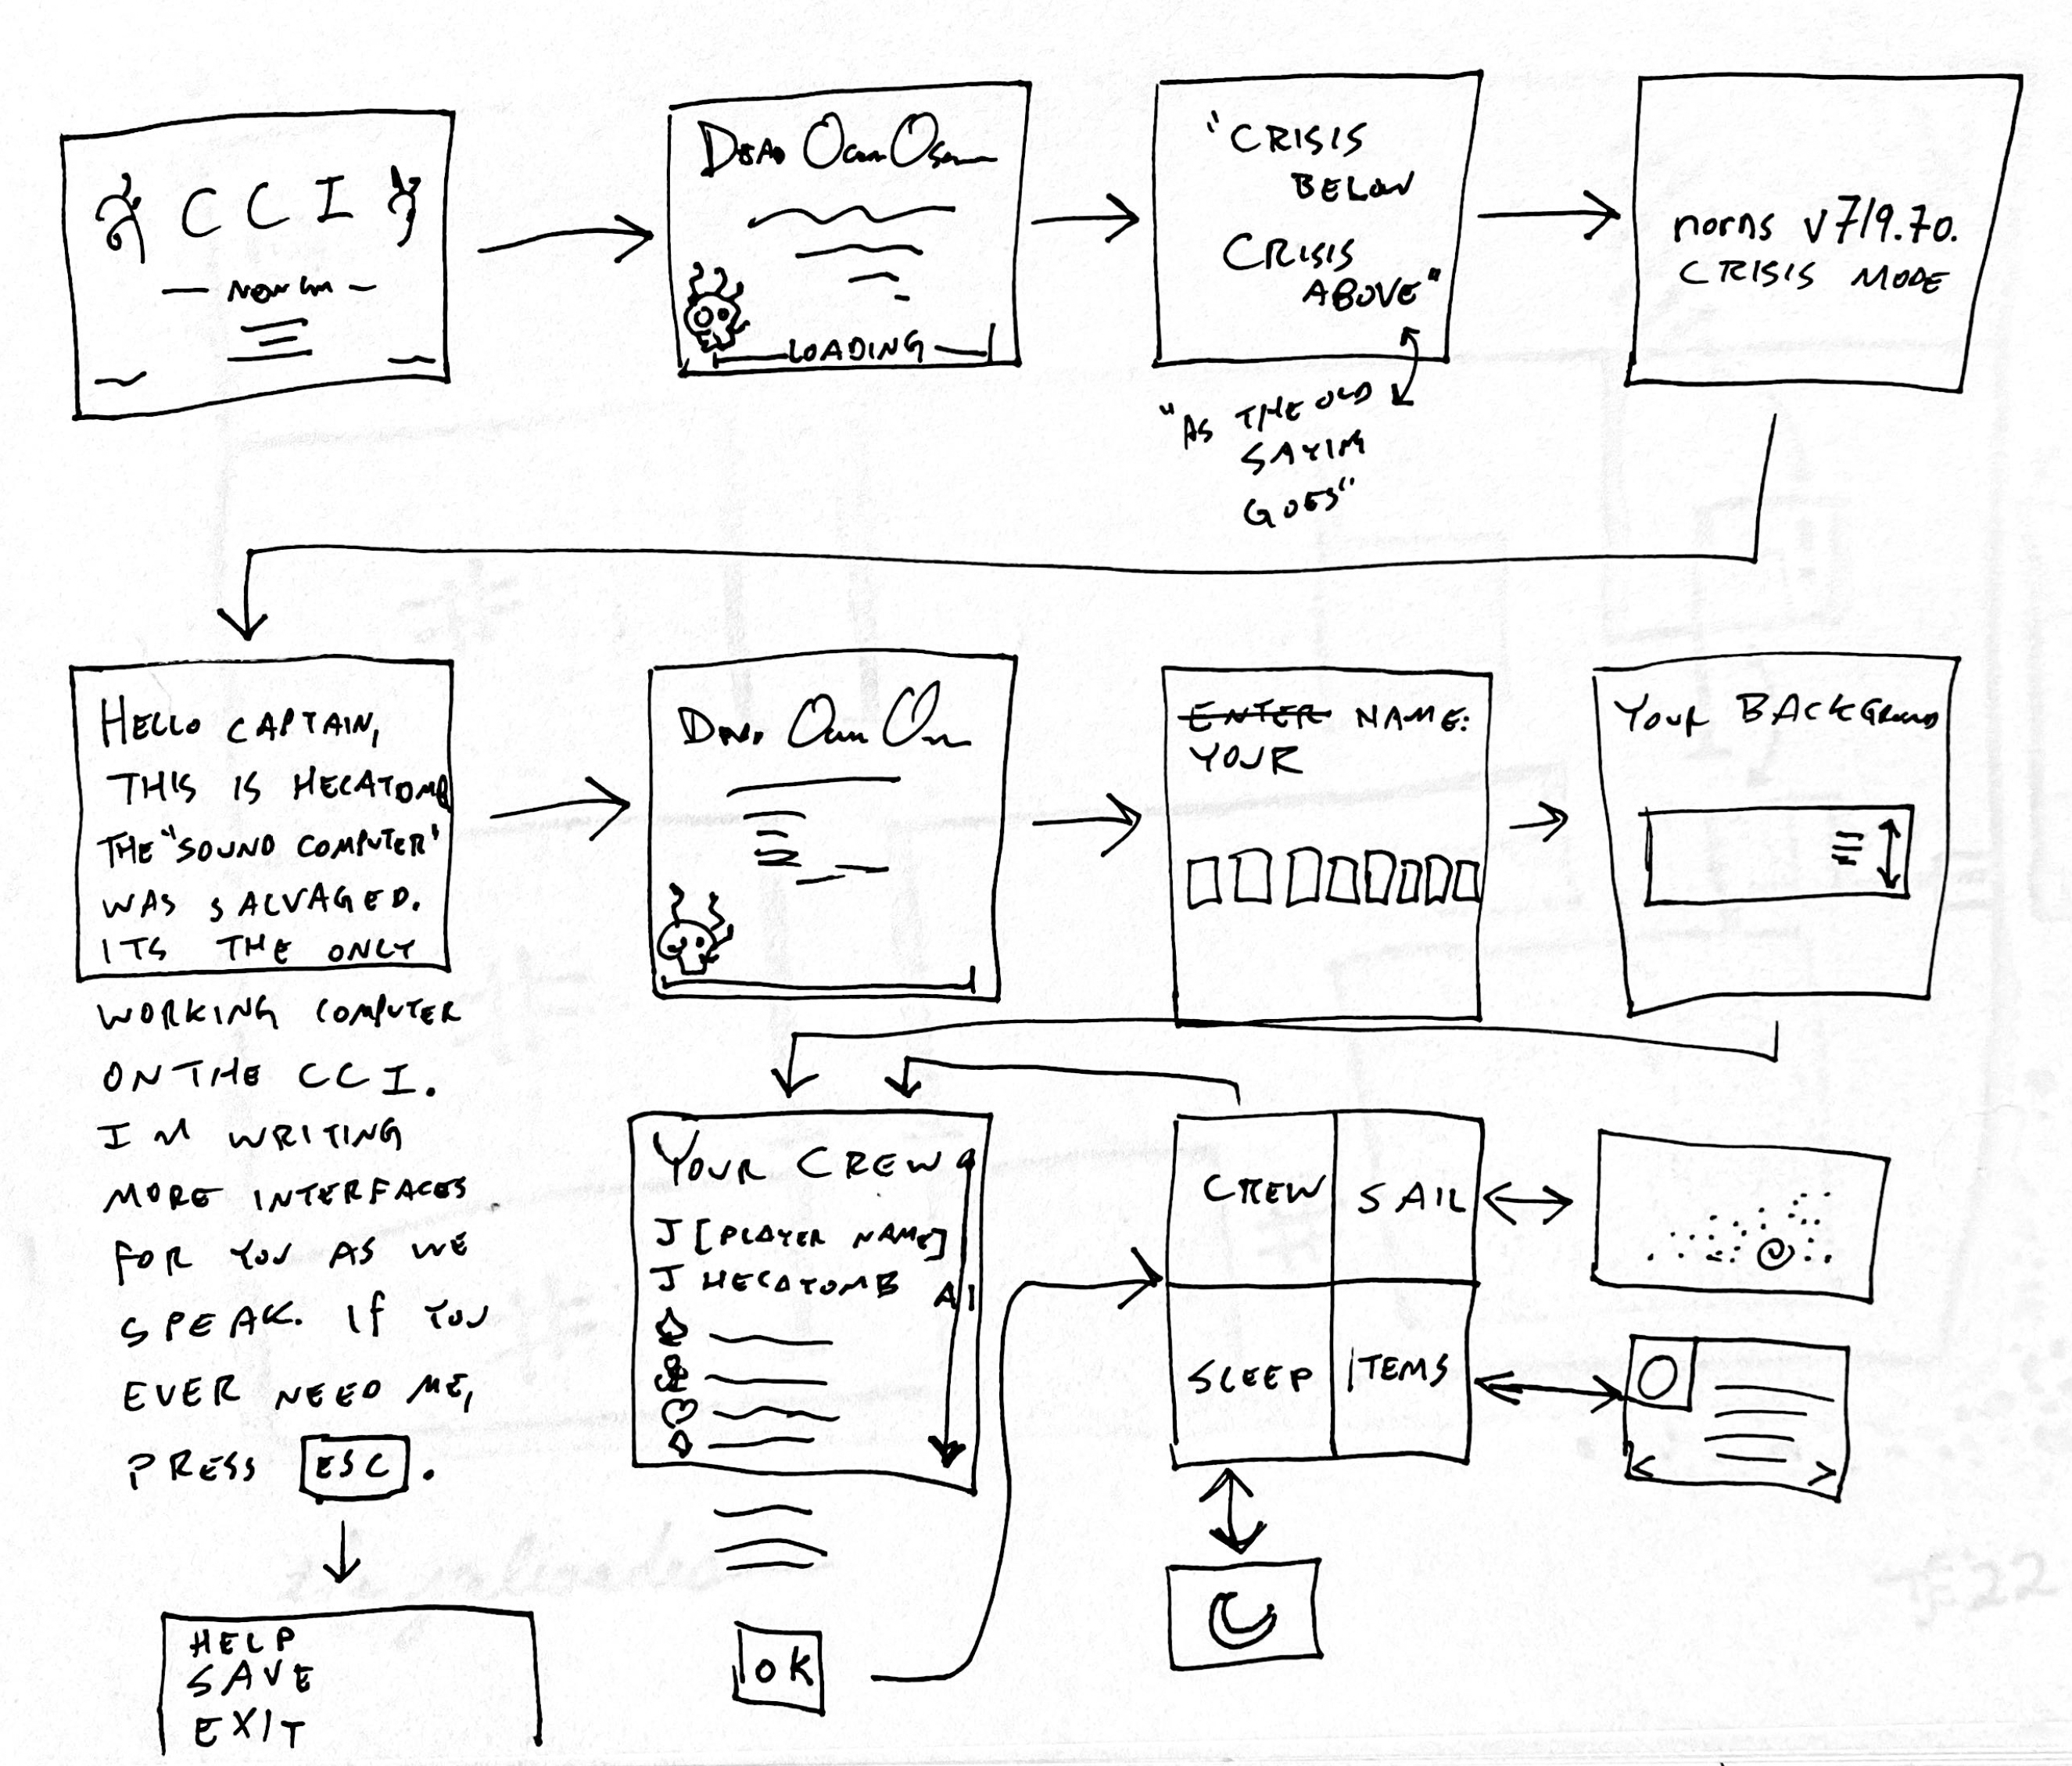 CCI
LOADING
"CRISIS
BELOW
CRISIS
ABOVE"
"AS THE OLD
SAYING
GOES"
norns v719.70.
CRISIS MODE
HELLO CAPTAIN,
THIS IS HECATOMB
THE "SOUND COMPUTER"
WAS SALVAGED.
ITS THE ONLY
WORKING COMPUTER
ON THE CCI.
IM WRITING
MORE INTERFACES
FOR YOU AS WE
SPEAK. If YOU
EVER NEED ME,
PRESS ESC.
HELP
SAVE
EXIT
ENTER NAME:
YOUR
YOUR BACKGROUND
YOUR CREW
J [PLAYER NAME]
J HECATOMB AI
OK
CREW
SAIL
SLEEP
ITEMS